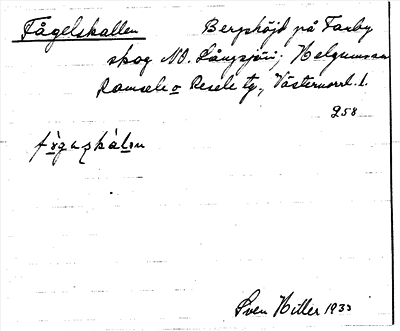 Fågelskallen Bergshöjd på Taxby
skog NO. Långsjön; Helgumsån
Ramsele o Resele tg., Västernorrl. l.
258
Sven Hiller 1933